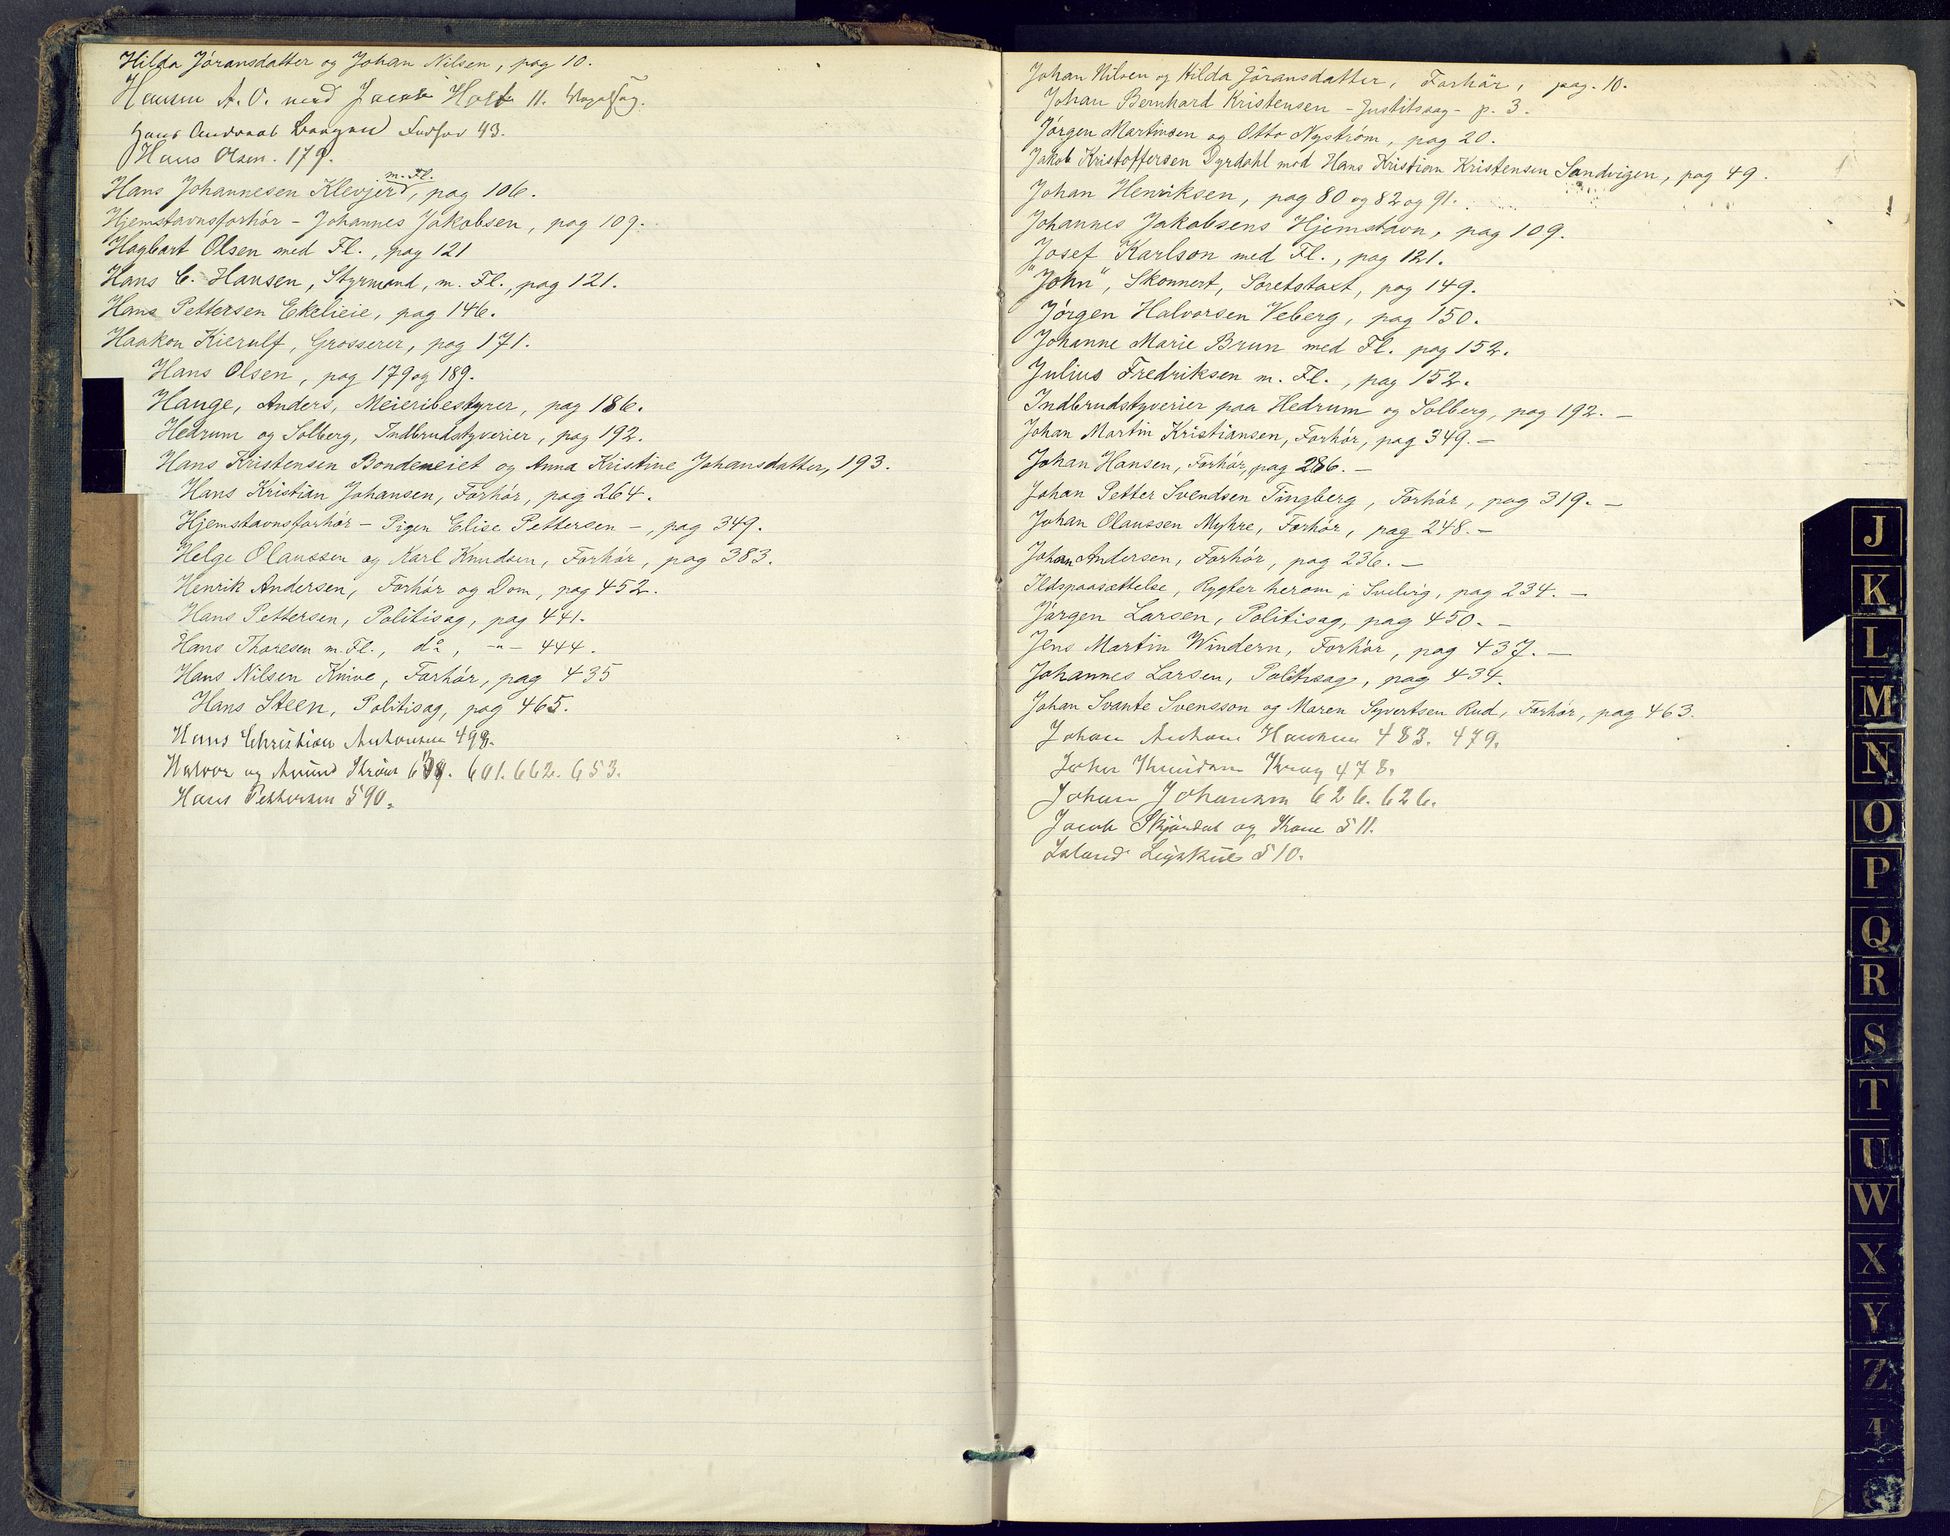 Hilda Jöransdatter og Johan Nilsen, pag 10.
Hansen A. O. med Jacob Holt 11.
Hans Andreas 43.
Hans Olsen. 179.
m. Fl.
Hans Johannesen Klevjer, pag 106.
Hjemstavnsforhör – Johannes Jakobsen, pag 109.
Hagbart Olsen med Fl., pag 121
Hans C. Hansen, Styrmand, m. Fl., pag 121.
Hans Pettersen Ekelieie, pag 146.
Haakon Kierulf, Grosserer, pag 171.
Hans Olsen, pag 179 og 189.
Hauge, Anders, Meieribestyrer, pag 186.
Hedrum og Solberg, Indbrudstyverier, pag 192.
Hans Kristensen Bondeneiet og Anna Kristine Johansdatter, 193.
Hans Kristian Johansen, Forhör, pag 264.
Hjemstavnsforhör – Pigen Elise Pettersen –, pag 349.
Helge Olaussen og Karl Knudsen, Forhör, pag 383.
Henrik Andersen, Forhör og Dom, pag 452.
Hans Pettersen, Politisag, pag 441.
Hans Thoresen m. Fl., do, -"- 444.
Hans Nilsen Knive, Forhör, pag 435
Hans Steen, Politisag, pag 465.
Hans Christian Antonsen 498.
Halvor og Amund 601. 662. 653.
Hans Pettersen 590.
Johan Nilsen og Hilda Jöransdatter, Forhör, pag. 10.
Johan Bernhard Kristensen – Justitssag – p. 3.
Jörgen Martinsen og Otto Nyström, pag 20.
Jakob Kristoffersen Dyrdahl mod Hans Kristian Kristensen Sandvigen, pag 49.
Johan Henriksen, pag 80 og 82 og 91.
Johannes Jakobsens Hjemstavn, pag 109.
Josef Karlson med Fl., pag 121.
"John", Skonnert, Söretstaxt, pag 149.
Jörgen Halvorsen Veberg, pag 150.
Johanne Marie Brun med Fl. pag 152.
Julius Fredriksen m. Fl., pag 152.
Indbrudstyverier paa Hedrum og Solberg, pag 192. –
Johan Martin Kristiansen, Forhör, pag 349. –
Johan Hansen, Forhör, pag 286. –
Johan Petter Svendsen Tingberg, Forhör, pag 319. –
Johan Olaussen Myhre, Forhör, pag 248. –
Johan Andersen, Forhör, pag 236. –
Ildspaasættelse, Rygter herom i Svelvig, pag 234. –
Jörgen Larsen, Politisag, pag 450. –
Jens Martin Windern, Forhör, pag 437. –
Johannes Larsen, Politisag, pag 434.
Johan Svante Svensson og Maren Syvertsen Rud, Forhör, pag 463.
Johan Anton Hansen 483. 479.
Johan Knudsen Krag 478.
Johan Johansen 626. 626.
Jacob Skjördal og Kone 511.
510.
J
K
L
M
N
O
P
Q
R
S
T
U
W
X
Y
Z